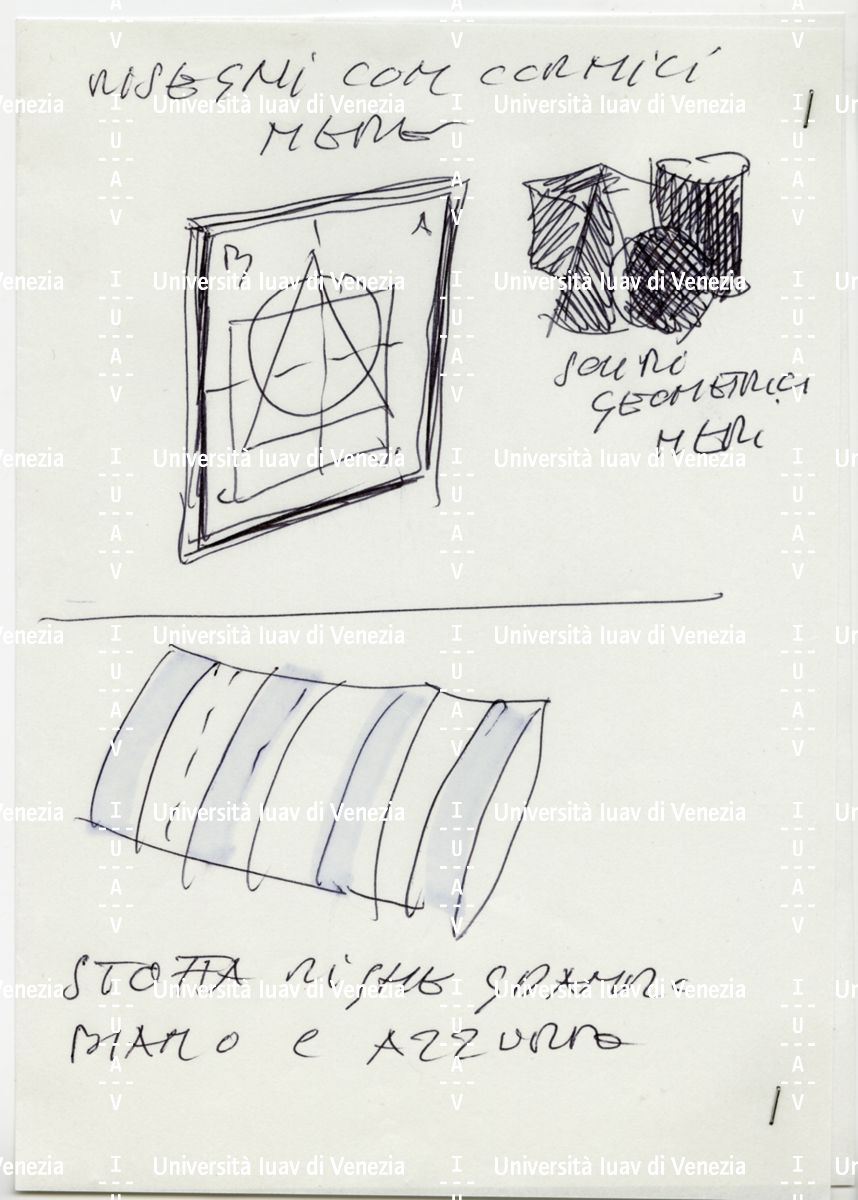 DISEGNI CON CORNICI
NERE
A
B
C
SOLIDI
GEOMETRICI
NERI
STOFFA RIGHE GRANDI
BIANCO e AZZURRO
Università Iuav di Venezia
I
U
A
V